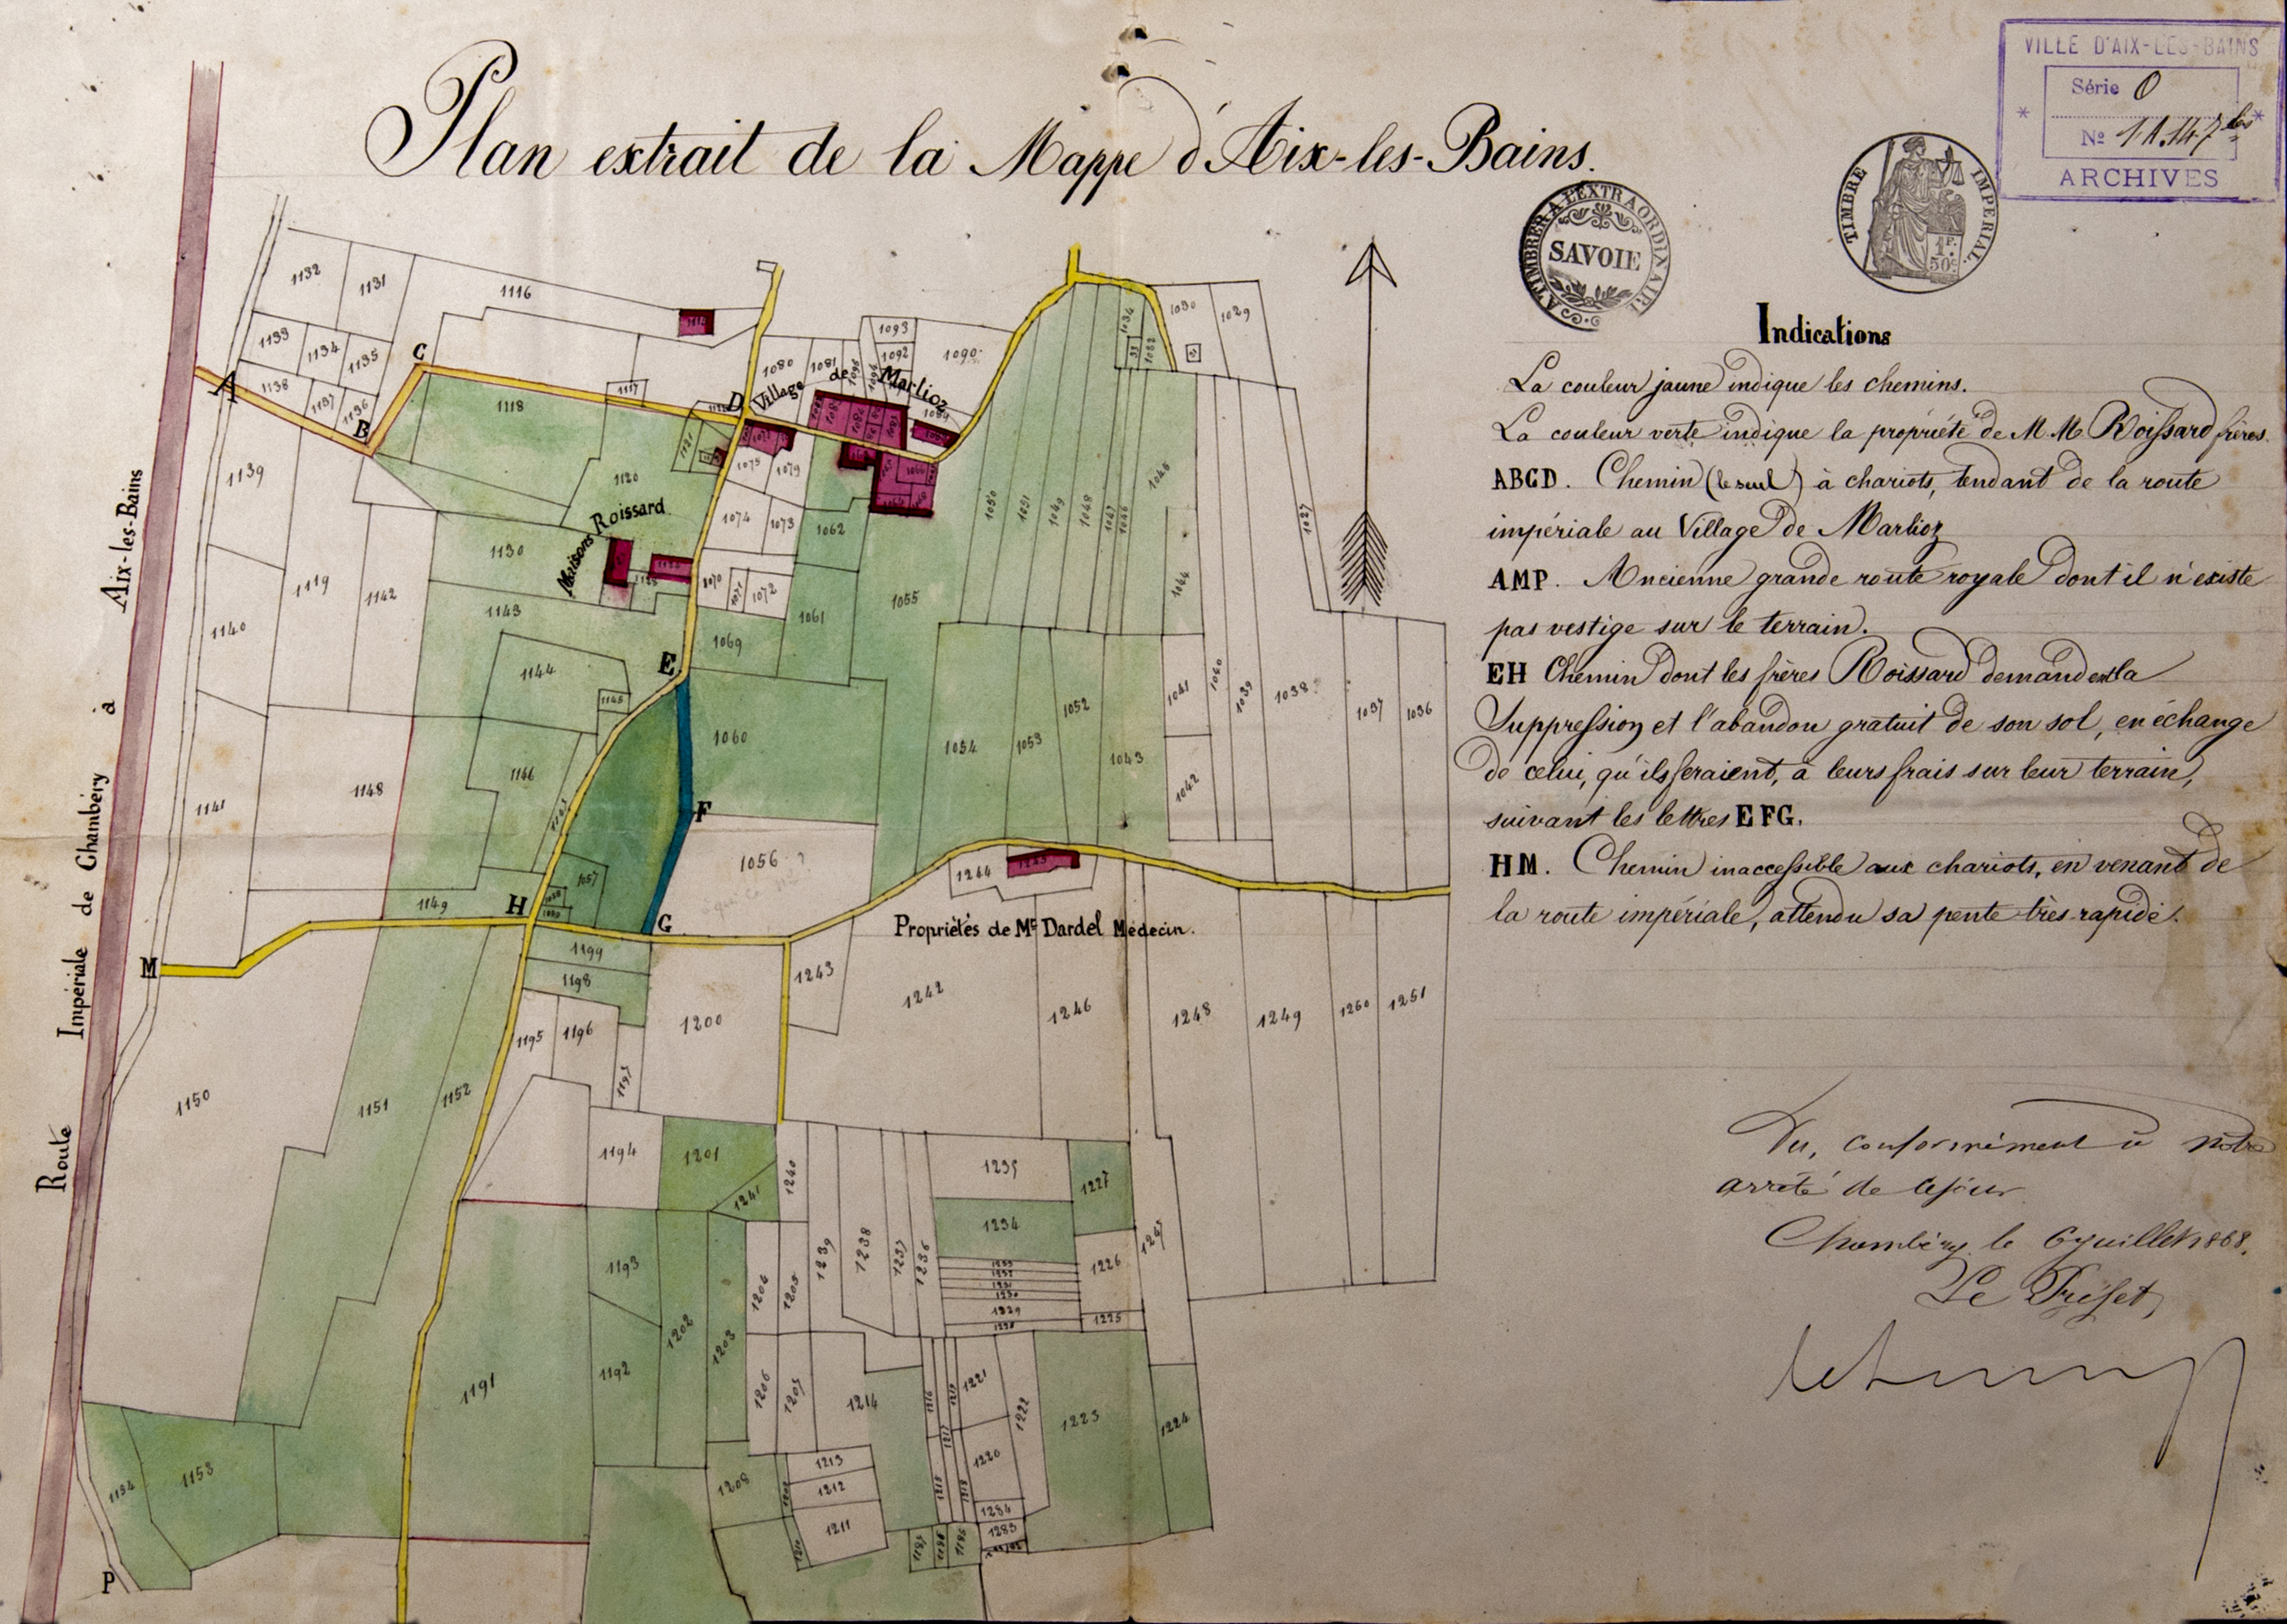 Plan extrait de la Mappe d'Aix-les-Bains.
VILLE D'AIX-LES-BAINS
Série O
Nº 1.A.147 bis
ARCHIVES
A TIMBRER A L'EXTRAORDINAIRE
SAVOIE
TIMBRE IMPERIAL
1F.
50c
Indications
La couleur jaune indique les chemins.
La couleur verte indique la propriété de M.M. Roissard frères.
ABCD. Chemin (le seul) à chariots, tendant de la route
impériale au Village de Marlioz
AMP. Ancienne grande route royale dont il n'existe
pas vestige sur le terrain.
EH Chemin dont les frères Roissard demandent la
Suppression et l'abandon gratuit de son sol, en échange
de celui, qu'ils feraient, à leurs frais sur leur terrain,
suivant les lettres EFG.
HM. Chemin inaccessible aux chariots, en venant de
la route impériale, attendu sa pente très rapide.
Vu, conformément à notre
arrêté de ce jour
Chambéry le 6 juillet 1868.
Le Préfet,
Route Impériale de Chambéry à Aix-les-Bains
Village de Marlioz
Maisons Roissard
Propriétés de Mr Dardel Médecin.
A
B
C
D
E
F
G
H
M
P
1132
1131
1116
1133
1134
1135
1138
1137
1136
1117
1118
1080
1081
1093
1092
1090
1030
1029
1034
1032
1139
1120
1121
1075
1079
1074
1073
1062
1050
1051
1049
1048
1047
1046
1045
1027
1119
1142
1130
1140
1143
1070
1071
1072
1061
1055
1044
1069
1144
1145
1060
1054
1053
1052
1043
1041
1042
1040
1039
1038
1037
1036
1141
1148
1146
1056
1057
1149
1244
1199
1198
1243
1242
1246
1248
1249
1260
1251
1195
1196
1197
1200
1150
1151
1152
1194
1201
1241
1240
1235
1227
1234
1239
1238
1237
1236
1226
1229
1225
1193
1192
1202
1203
1206
1205
1206
1205
1191
1214
1216
1217
1221
1220
1222
1223
1224
1213
1212
1211
1208
1284
1283
1154
1153